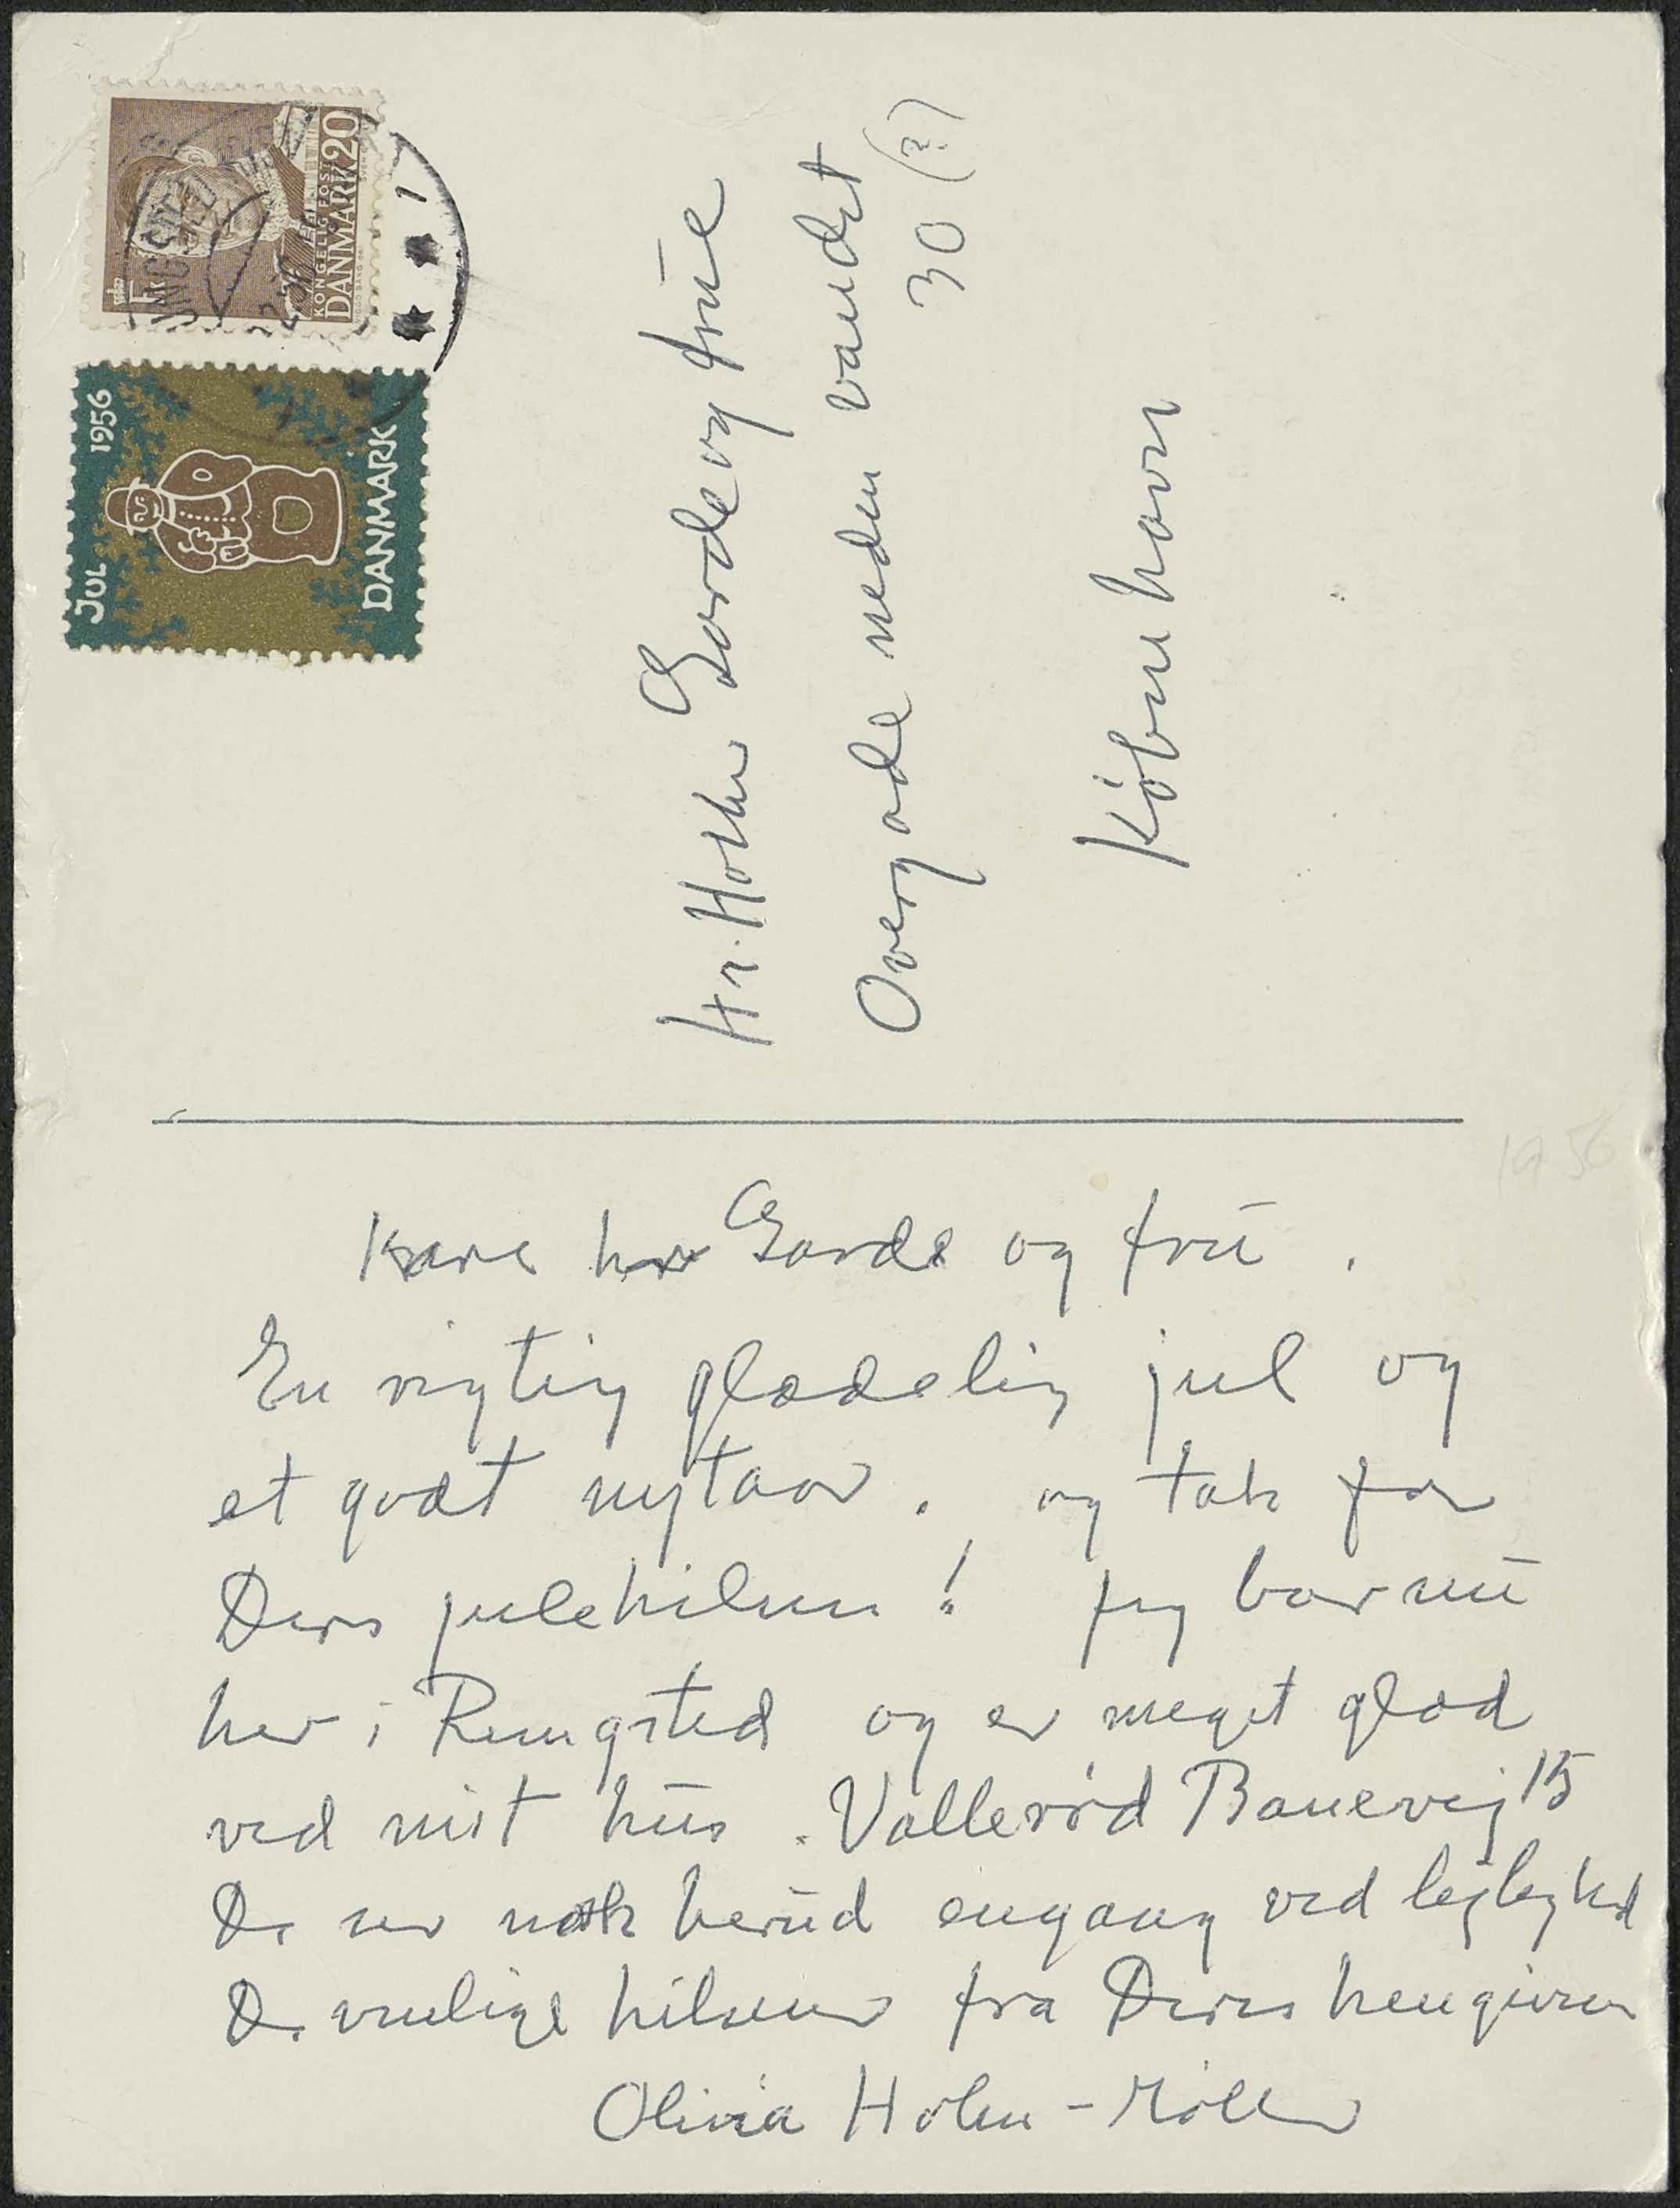 KONGELIG POST
DANMARK 20
JUL 1956
DANMARK
Hr. Holke Garde og frue
Overgade neden vandet
30 (?)
København
1956
Kære hr Garde og fru.
En rigtig glædelig jul og
et godt nytaar. og tak for
Deres julehilsen! Jeg bor nu
her i Rungsted og er meget glad
ved mit hus. Vallerød Banevej 15
De ser nok herud engang ved lejlighed
De venlige hilsner fra Deres hengivne
Olivia Holm-Møller